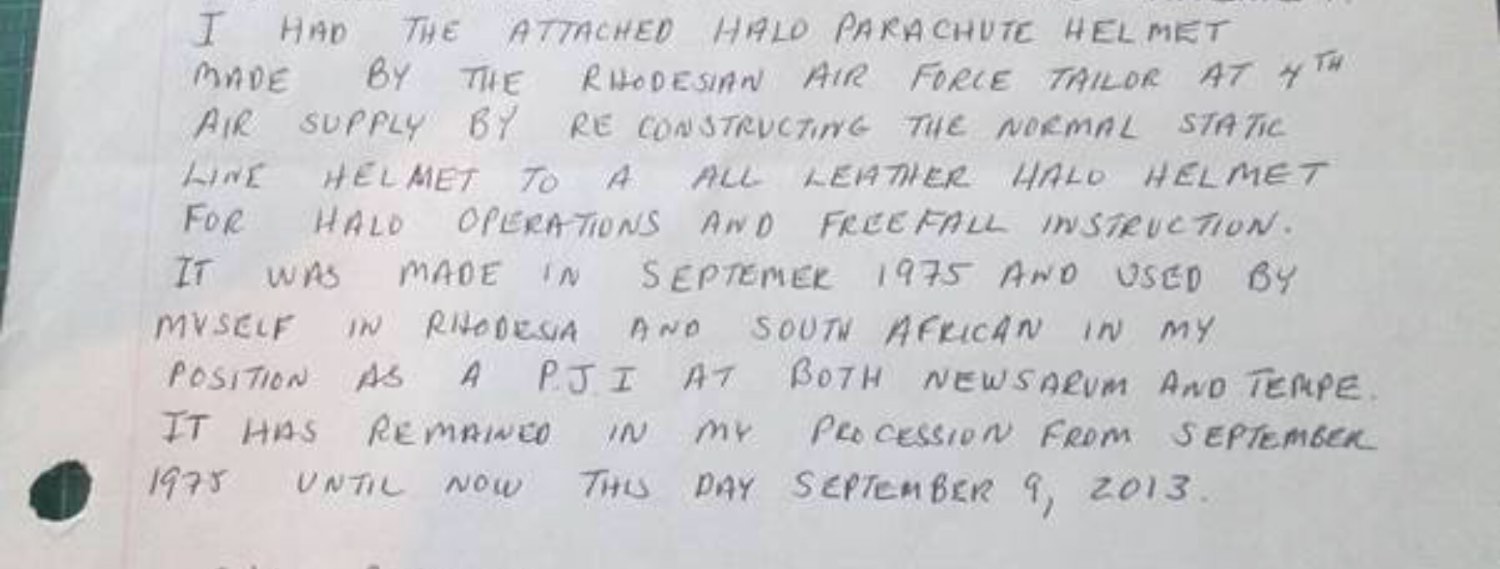 I HAD THE ATTACHED HALO PARACHUTE HELMET
MADE BY THE RHODESIAN AIR FORCE TAILOR AT 4TH
AIR SUPPLY BY RE CONSTRUCTING THE NORMAL STATIC
LINE HELMET TO A ALL LEATHER HALO HELMET
FOR HALO OPERATIONS AND FREEFALL INSTRUCTION.
IT WAS MADE IN SEPTEMER 1975 AND USED BY
MYSELF IN RHODESIA AND SOUTH AFRICAN IN MY
POSITION AS A P.J.I AT BOTH NEWSARUM AND TEMPE.
IT HAS REMAINED IN MY PROCESSION FROM SEPTEMBER
1975 UNTIL NOW THIS DAY SEPTEMBER 9, 2013.